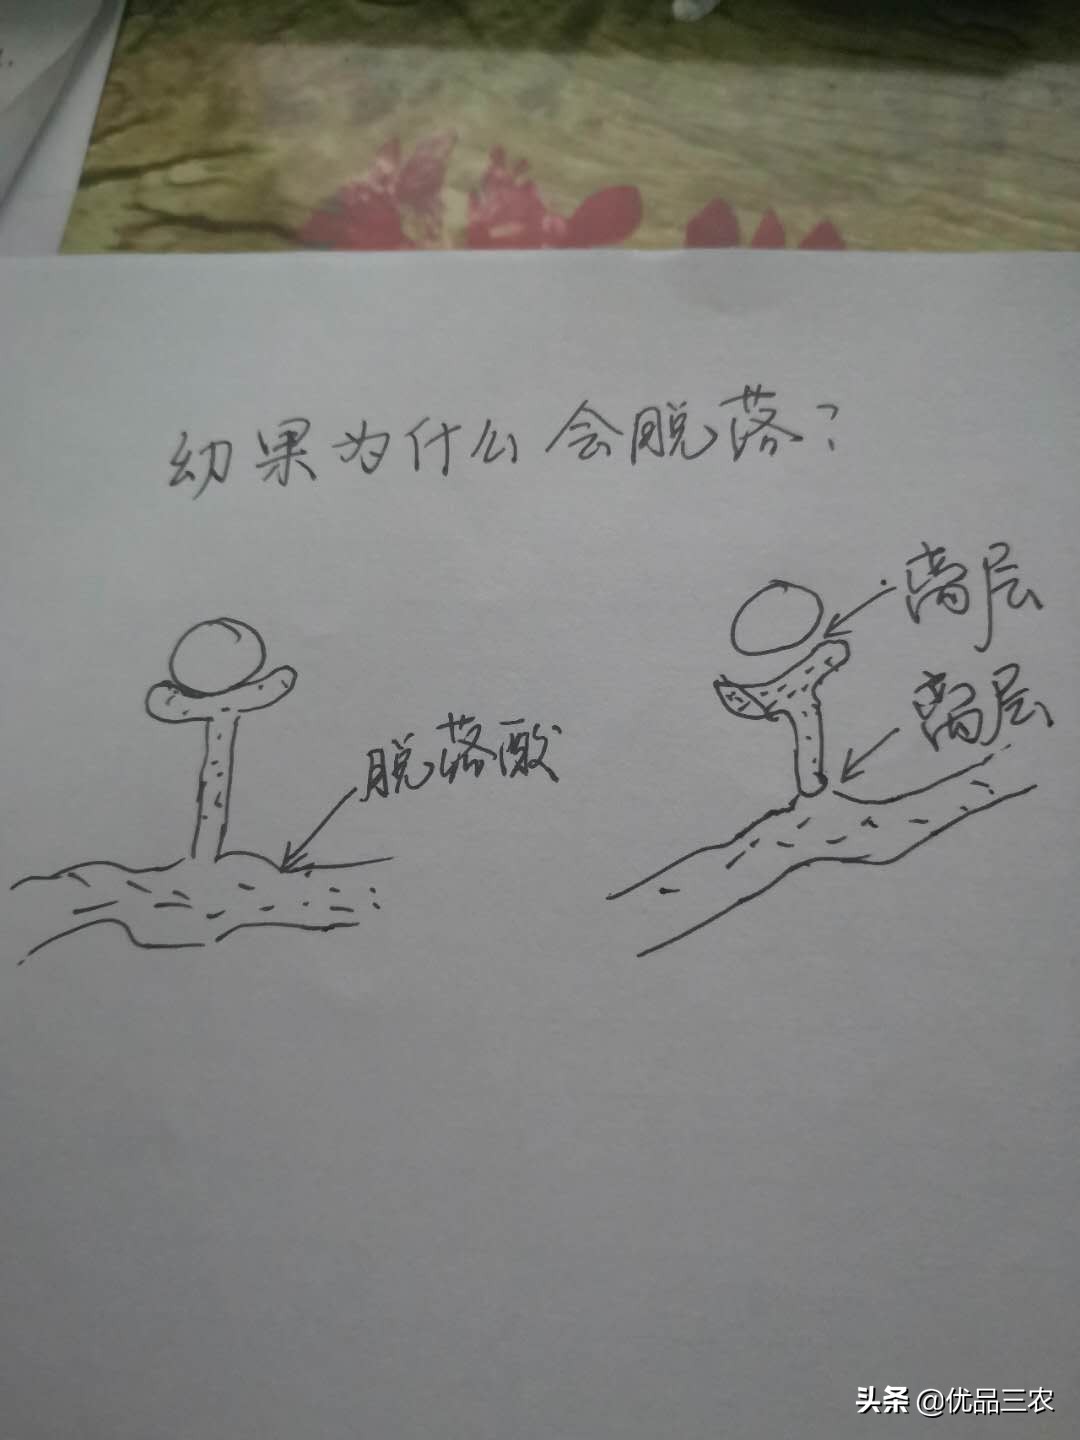 幼果为什么会脱落？
离层
离层
脱落酸
头条 @优品三农